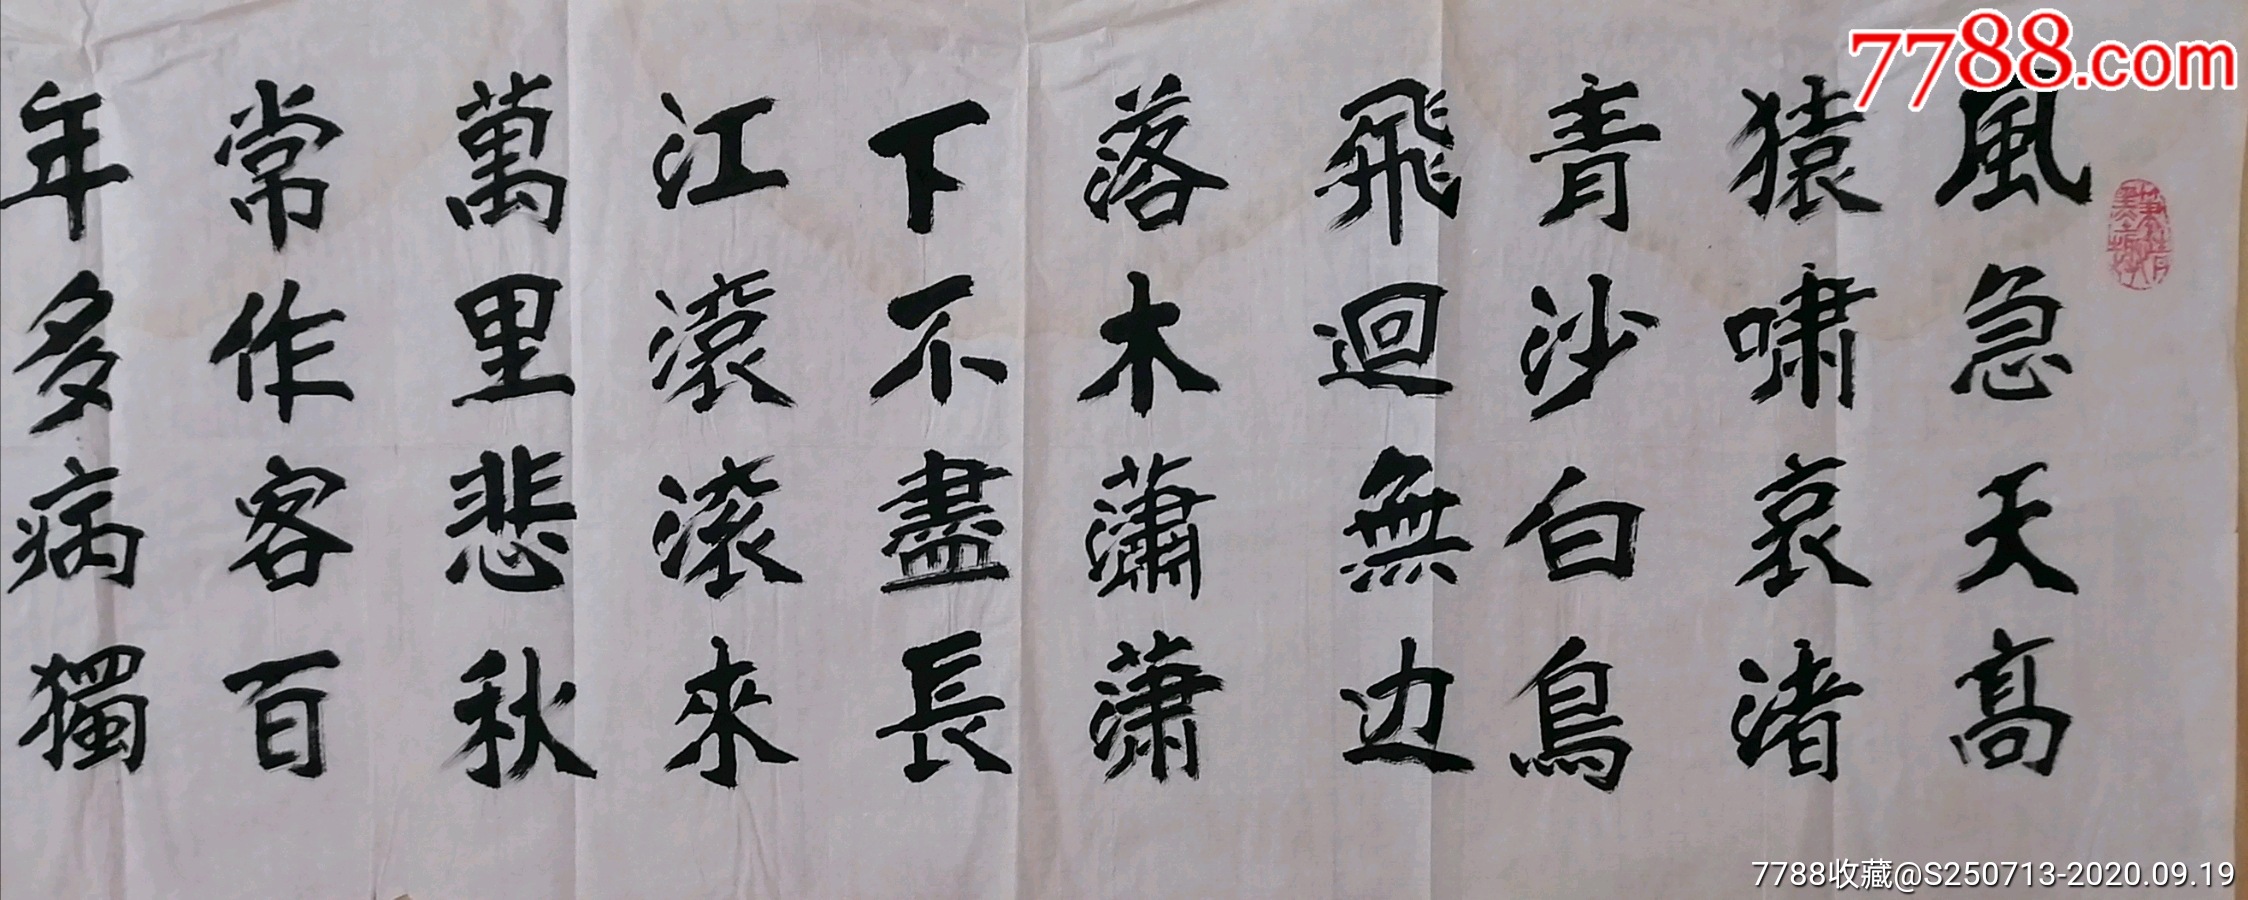 風急天高
猿啸哀渚
青沙白鳥
飛迴無边
落木蕭蕭
下不盡長
江滾滾來
萬里悲秋
常作客百
年多病獨
7788.com
7788收藏@S250713-2020.09.19